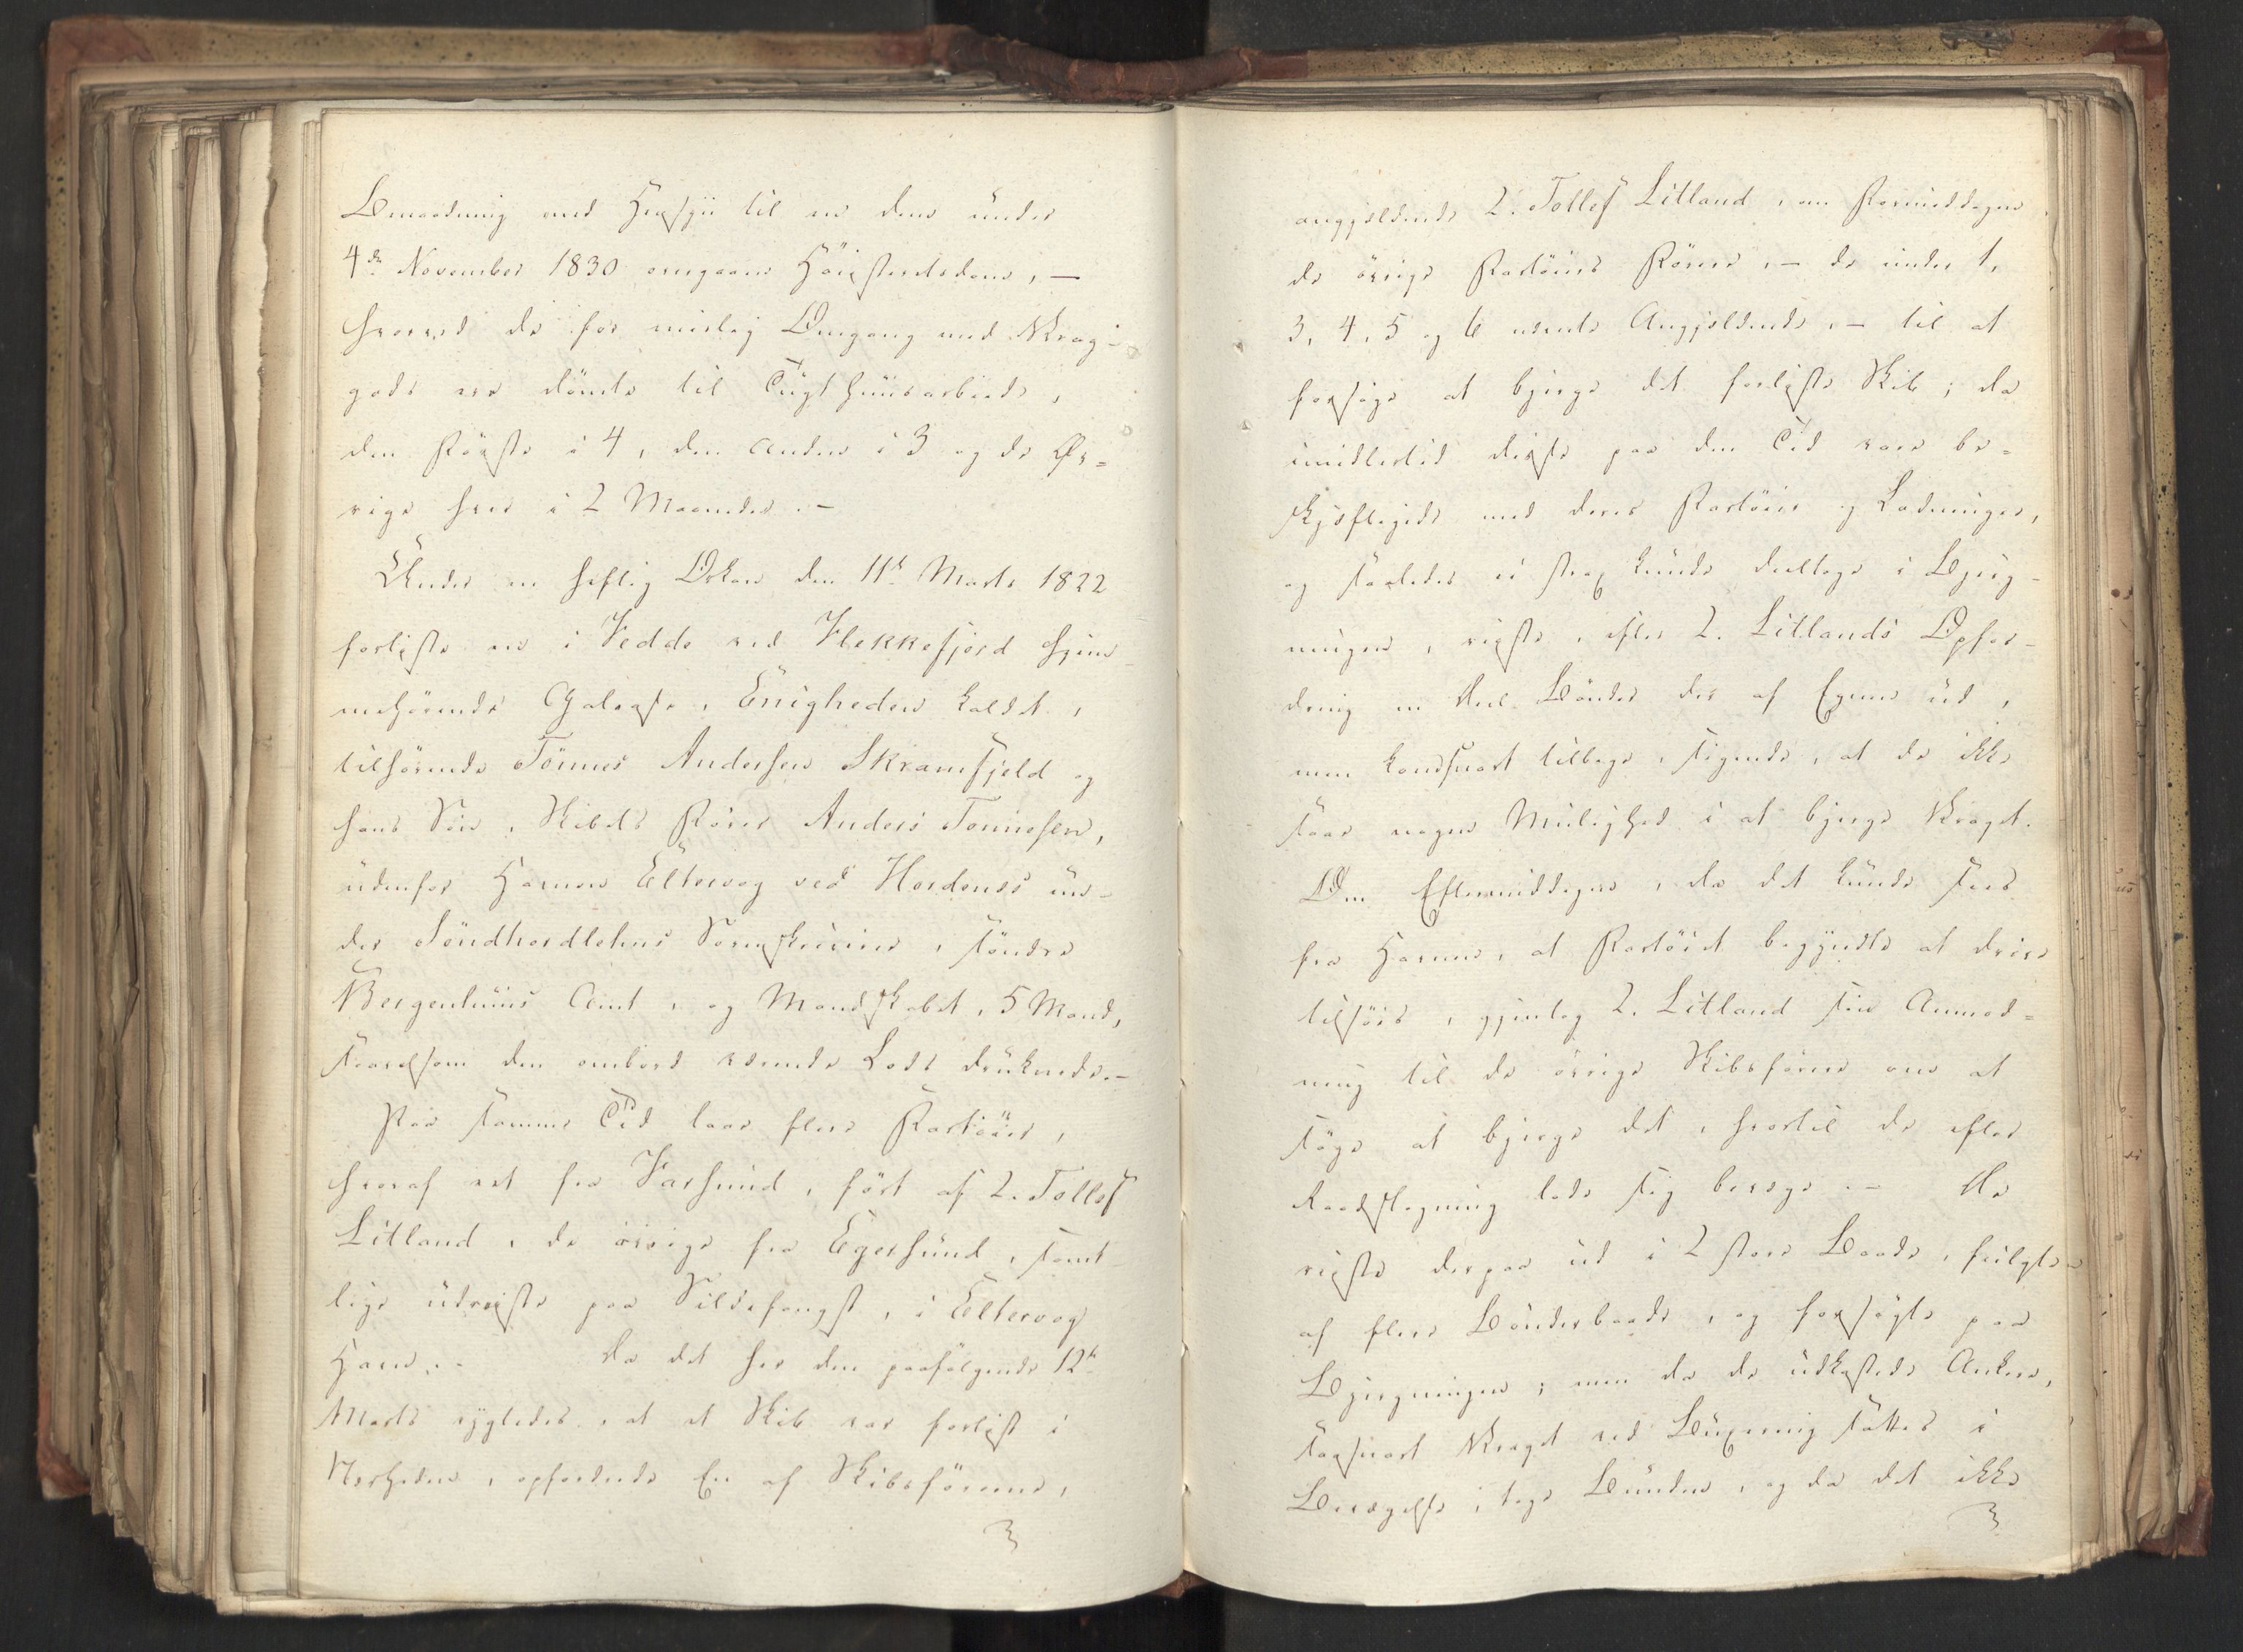 Benaadning med Hensyn til en dem under
4de November 1830 overgaaen Höiesteretsdom, —
hvorved de for mislig Omgang med Vrag-
gods ere dömte til Tugthuusarbeide,
den Förste i 4, den Anden i 3 og de Øv=
rige hver i 2 Maaneder. —
Under en heftig Orkan den 11te Marts 1822
forliste en i Fedde ved Flekkefjord hjem-
mehörende Galease, Enigheden kaldet,
tilhörende Tönnes Andersen Skramfjeld og
hans Sön, Skibets Förer Anders Tönnesen,
udenfor Havnen Eltervog ved Hordenes un-
der Söndhordlehns Sorenskriverie, söndre
Bergenhuus Amt, og Mandskabet, 5 Mand,
saavelsom den ombord værende Lods druknede. —
Paa samme Tid laae flere Fartöier,
hvoraf eet fra Farsund, fört af 2. Tollef
Litland, de övrige fra Egersund, samt-
lige udreiste paa Sildefangst, i Eltervog
Havn. - Da det her den paafölgende 12te
Marts rygtedes, at et Skib var forlist i
Nærheden, opfordrede En af Skibsförerne,
angjeldende 2. Tollef Litland, om Formiddagen
de övrige Fartöiers Förere, — de under 1,
3, 4, 5 og 6 nævnte Angjeldende, — til at
forsöge at bjerge det forliste Skib; da
imidlertid disse paa den Tid vare be=
skjeftigede med deres Fartöier og Ladninger,
og saaledes ei strax kunde deeltage i Bjerg-
ningen, reiste, efter 2. Litlands Opfor-
dring en Deel Bönder der af Egnen ud,
men kom snart tilbage, sigende, at de ikke
saae nogen Mulighed i at bjerge Vraget.
Om Eftermiddagen, da det kunde sees
fra Havnen, at Fartöiet begyndte at drive
tilsöes, gjentog 2. Litland sin Anmod=
ning til de övrige Skibsförere om at
söge at bjerge det, hvortil de efter
Raadslagning lode sig bevæge. — De
reiste derpaa ud i 2 store Baade, fulgte
af flere Bönderbaade, og forsögte paa
Bjergningen; men da de udkastede Ankere,
saasnart Vraget ved Buxering sattes i
Bevægelse, toge Bunden, og da det ikke